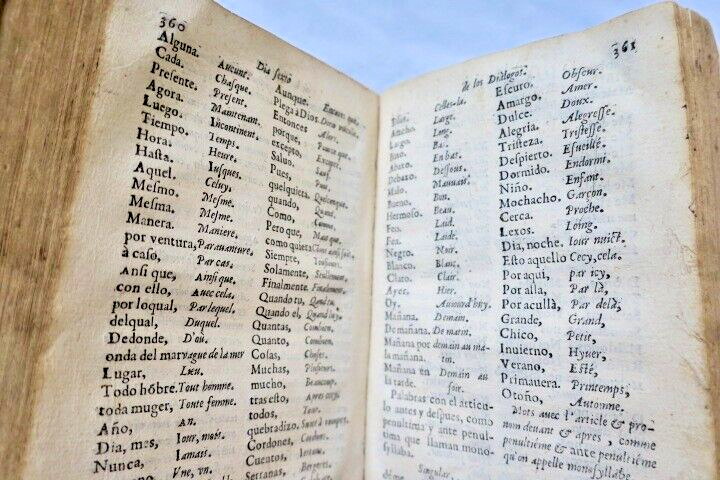 360
Dia sexto
Alguna. Aucune.
Cada. Chasque.
Presente. Present.
Agora. Maintenant.
Luego. Incontinent.
Tiempo. Temps.
Hora. Heure.
Hasta. Iusques.
Aquel. Celuy.
Mesmo. Mesme.
Mesma. Mesme.
Manera. Maniere.
por ventura, Paravanture.
à caso, Par cas.
Ansi que, Ainsi que.
con ello, Avec cela.
por loqual, Par lequel.
delqual, Duquel.
Dedonde, D'où.
onda del mar vague de la mer
Lugar, Lieu.
Todo hõbre. Tout homme.
toda muger, Toute femme.
Año, An.
Dia, mes, Iour, mois.
Nunca, Iamais.
Vne, vn.
Aunque. Encores que.
Plega à Dios.
Entonces Alors.
porque,
excepto, Excepté.
Saluo. Sauf.
Pues, Puis.
quelquiera. Quelconque.
quando, Quand.
Como, Comme.
Pero que, Mais que.
como quiera
Siempre, Tousiours.
Solamente, Seulement.
Finalmente. Finalement.
Quando tu, Quand tu.
Quando el, Quand luy.
Quantas, Combien.
Quanto, Combien.
Cosas, Choses.
Muchas, Plusieurs.
mucho, Beaucoup.
tras esto, Apres
todos, Tous.
quebradizo,
Cordones, Cordons.
Cuentos,
Serranas, Bergeres.
361
de los Dialogos.
Celles-la.
Ancho. Large.
Largo. Long.
Bas.
Abaxo. En bas.
Debaxo. Dessous.
Malo. Mauuais.
Bueno. Bon.
Hermoso. Beau.
Feo. Laid.
Fea. Laide.
Negro. Noir.
Blanco. Blanc.
Claro. Clair.
Ayer. Hier.
Oy. Auiourd'huy.
Mañana. Demain.
De mañana. De matin.
Mañana por demain au ma-
la mañana. tin.
Mañana en Demain au
la tarde. soir.
Palabras con el articu-
lo antes y despues, como
penultima y ante penul-
tima que llaman mono-
syllaba.
Singular.
Escuro. Obscur.
Amargo. Amer.
Dulce. Doux.
Alegria. Alegresse.
Tristeza. Tristesse.
Despierto. Esueillé.
Dormido. Endormi.
Niño. Enfant.
Mochacho. Garçon.
Cerca. Proche.
Lexos. Loing.
Dia, noche. Iour nuict.
Esto aquello Cecy, cela.
Por aqui, par icy,
Por alla, Par là,
Por acullà, Par delà;
Grande, Grand,
Chico, Petit,
Inuierno, Hyuer,
Verano, Esté,
Primauera. Printemps,
Otoño, Automne.
Mots auec l'article & pro-
nom deuant & apres, comme
penultiéme & ante penultiéme
qu'on appelle monosyllabe